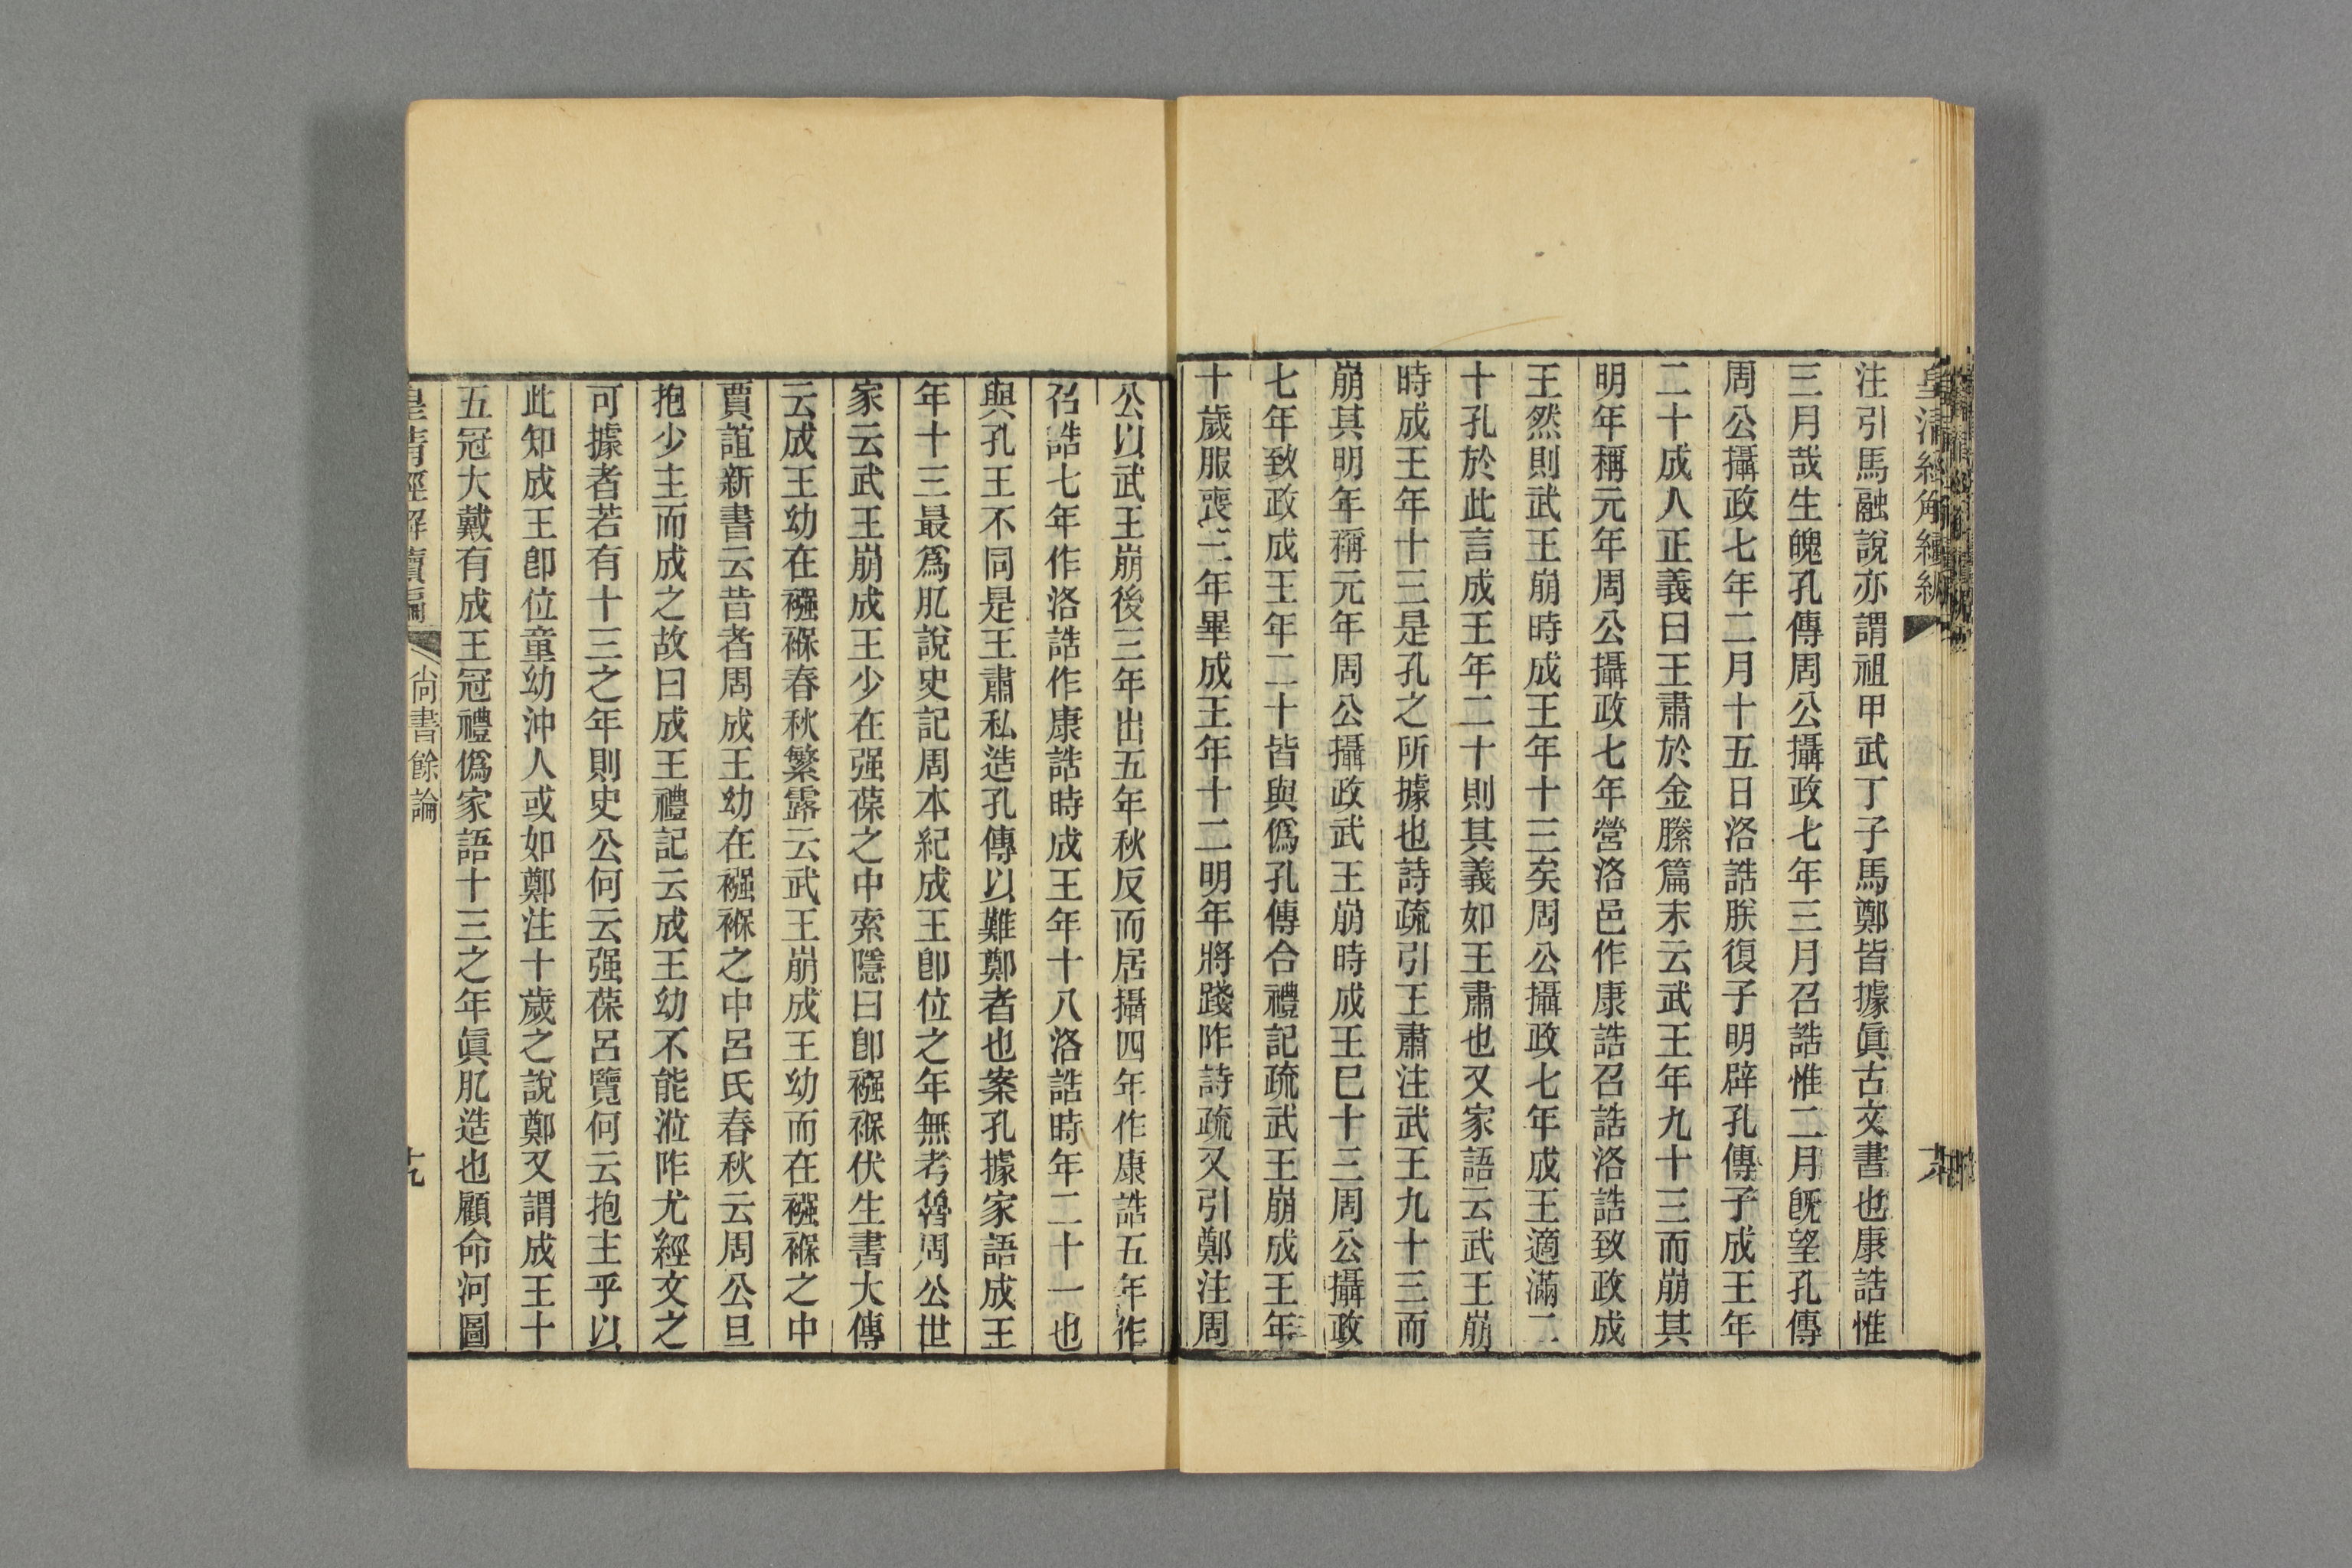 皇清經解續編
注引馬融說亦謂祖甲武丁子馬鄭皆據眞古文書也康誥惟
三月哉生魄孔傳周公攝政七年三月召誥惟二月旣望孔傳
周公攝政七年二月十五日洛誥朕復子明辟孔傳子成王年
二十成人正義曰王肅於金縢篇末云武王年九十三而崩其
明年稱元年周公攝政七年營洛邑作康誥召誥洛誥致政成
王然則武王崩時成王年十三矣周公攝政七年成王適滿二
十孔於此言成王年二十則其義如王肅也又家語云武王崩
時成王年十三是孔之所據也詩疏引王肅注武王九十三而
崩其明年稱元年周公攝政武王崩時成王已十三周公攝政
七年致政成王年二十皆與僞孔傳合禮記疏武王崩成王年
十歲服喪三年畢成王年十二明年將踐阼詩疏又引鄭注周
公以武王崩後三年出五年秋反而居攝四年作康誥五年作
召誥七年作洛誥作康誥時成王年十八洛誥時年二十一也
與孔王不同是王肅私造孔傳以難鄭者也案孔據家語成王
年十三最爲肊說史記周本紀成王卽位之年無考魯周公世
家云武王崩成王少在强葆之中索隱曰卽襁褓伏生書大傳
云成王幼在襁褓春秋繁露云武王崩成王幼而在襁褓之中
賈誼新書云昔者周成王幼在襁褓之中呂氏春秋云周公旦
抱少主而成之故曰成王禮記云成王幼不能涖阼尤經文之
可據者若有十三之年則史公何云强葆呂覽何云抱主乎以
此知成王卽位童幼沖人或如鄭注十歲之說鄭又謂成王十
五冠大戴有成王冠禮僞家語十三之年眞肊造也顧命河圖
皇清經解續編 尚書餘論 十九